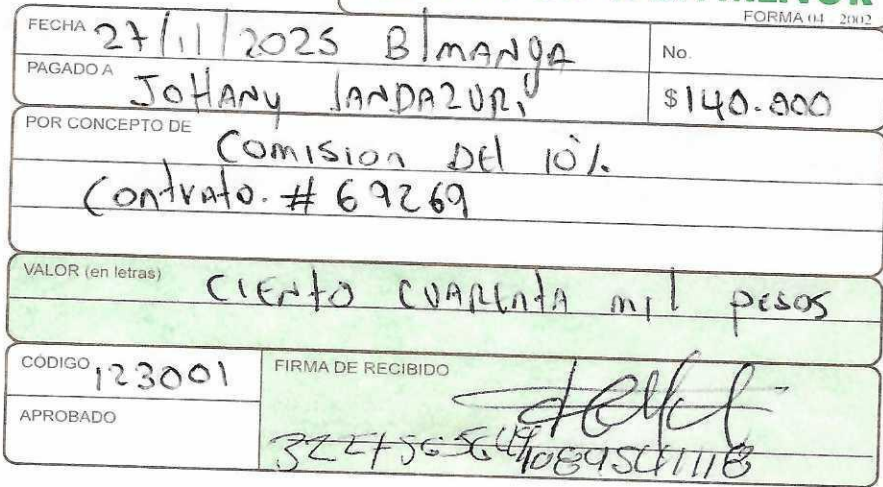 FORMA 04 - 2002
FECHA 27/11/2025 B/MANGA
No.
PAGADO A JOHANY LANDAZURI
$140.000
POR CONCEPTO DE
Comision DEL 10%
Contrato. # 69269
VALOR (en letras) CIENTO CUARENTA mil pesos
CÓDIGO 123001
FIRMA DE RECIBIDO
APROBADO
1089541118